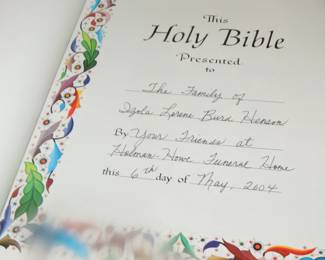 This
Holy Bible
Presented
to
The Family of
Izola Lorene Burd Henson
By Your Friends at
Holman-Howe Funeral Home
this 6th day of May, 2004